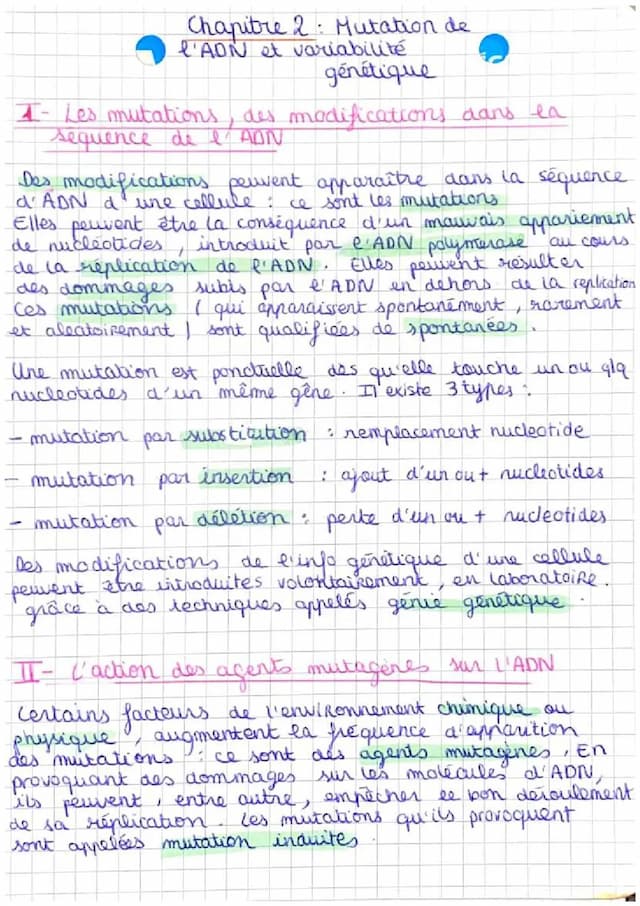 Chapitre 2 : Mutation de
l'ADN et variabilité
génétique
I - Les mutations, des modifications dans la
séquence de l'ADN
Des modifications peuvent apparaître dans la séquence
d'ADN d'une cellule : ce sont les mutations
Elles peuvent être la conséquence d'un mauvais appariement
de nucléotides, introduit par l'ADN polymerase au cours
de la réplication de l'ADN. Elles peuvent résulter
des dommages subis par l'ADN en dehors de la replication
Ces mutations ( qui apparaissent spontanément, rarement
et aleatoirement ) sont qualifiées de spontanées.
Une mutation est ponctuelle des qu'elle touche un ou qlq
nucleotides d'un même gène. Il existe 3 types :
- mutation par substitution : remplacement nucleotide
- mutation par insertion : ajout d'un ou + nucleotides
- mutation par délétion : perte d'un ou + nucleotides
Des modifications de l'info génétique d'une cellule
peuvent être introduites volontairement, en laboratoire.
grâce à des techniques appelés génie génétique.
II - L'action des agents mutagènes sur L'ADN
Certains facteurs de l'environnement chimique ou
physique, augmentent la fréquence d'apparition
des mutations : ce sont des agents mutagènes. En
provoquant des dommages sur les molécules d'ADN,
ils peuvent, entre autre, empêcher le bon déroulement
de sa réplication. Les mutations qu'ils provoquent
sont appelées mutation induites.